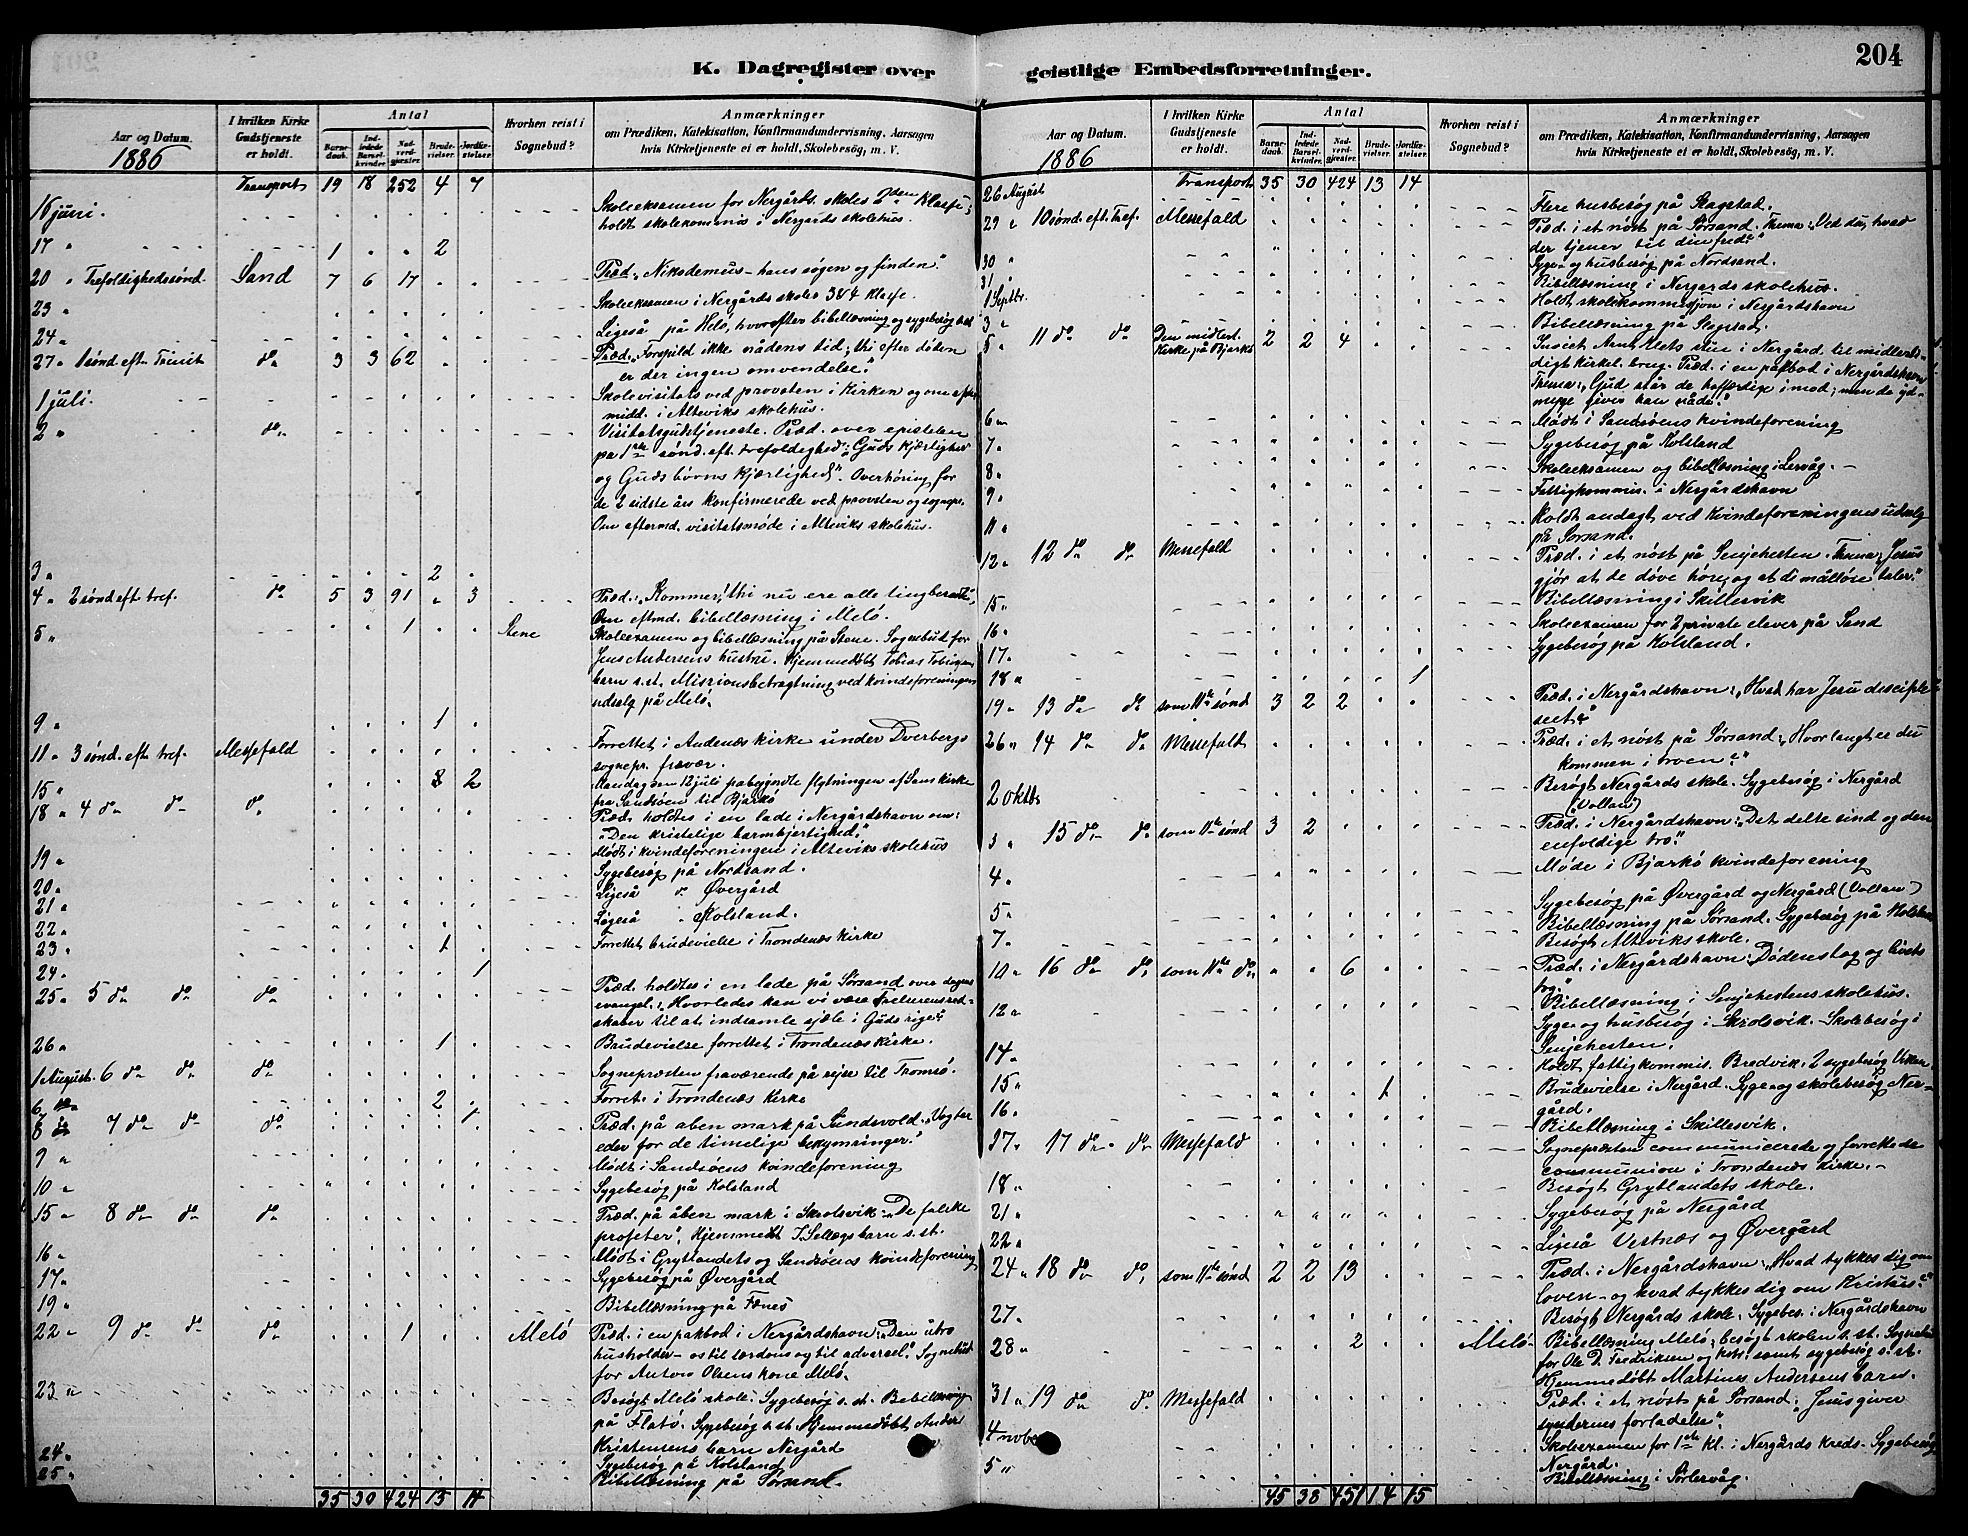 204
K. Dagregister over geistlige Embedsforretninger.
Aar og Datum. 1886
I hvilken Kirke Gudstjeneste er holdt.
Antal
Barnedaab. Indledede Barselkvinder. Nadverdgjæster. Brudevielser. Jordfæstelser.
Hvorhen reist i Sognebud?
Anmærkninger
om Prædiken, Katekisation, Konfirmandundervisning, Aarsagen
hvis Kirketjeneste ei er holdt, Skolebesög, m. V.
Transport 19 18 252 4 7
16 juni. Skoleeksamen for Nergårds skoles 2den Klasse;
holdt skolekommis i Nergårds skolehus.
17 " 1 2
20 " Trefoldighedssønd. Sand 7 6 17 Præd. "Nikodemus - hans søgen og finden".
23 " Skoleeksamen i Nergårds skoles 3&4 Klasse.
24 " Ligeså på Helö, hvorefter bibellæsning og sygebesøg
27 " 1 sönd eft Trinit do 3 3 62 Præd. "Forspild ikke nådens tid; thi efter döden
er der ingen omvendelse."
1 juli. Skolevisitats ved provsten i Kirken og om efter-
midd. i Alteviks skolehus.
2 " do Visitatsgudstjeneste. Præd. over epistelen
på 1ste sönd. eft. trefoldighed: "Guds Kjærlighed
og Guds börns Kjærlighed". Overhöring for
de 2 sidste års konfirmerede ved provsten og sognepr.
Om eftermd. visitatsmöde i Alteviks skolehus.
3 " 2
4 " 2 sönd eft tref. do 5 3 91 3 Præd.: "Kommer, thi nu ere alle ting beredte",
Om eftmd. bibellæsning i Melö.
5 " 1 Stene Skoleexamen og bibellæsning på Stene. Sognebud for
Jens Andersens hustru. Hjemmedöbt Tobias Tobiasens
barn s. st. Missionsbetragtning ved kvindeforeningens
udsalg på Melö.
9 " 1
11 " 3 sönd. eft. tref. Messefald Forrettet i Andenæs kirke under Dverbergs
sognepr. fravær.
15 " 3 2 Mandag den 12 juli påbegyndte flytningen af Sand kirke
fra Sandsöen til Bjarkö
18 " 4 do do do Præd. holdtes i en lade i Nergårdshavn om:
"Den kristelige barmhjertighed."
19 " Mødt i kvindeforeningen i Alteviks skolehus
20 " Sygebesøg på Nordsand.
21 " Ligeså do Øvergård
22 " Ligeså " Kolsland.
23 " 1 Forrettet brudevielse i Trondenæs Kirke
24 " 1
25 " 5 do do do Præd. holdtes i en lade på Sørsand over dagens
evangel.: "Hvorledes kan vi være Frelserens red-
skaber til at indsamle sjæle i Guds rige?"
26 " 1 Brudevielse forrettet i Trondenæs Kirke.
1 August. 6 do do do Sognepræsten fraværende på rejse til Tromsö.
6 " 2 Forret. i Trondenæs Kirke
8 " 7 do do do 1 Præd. på åben mark på Sundsvold. "Vogter
eder for de timelige bekymringer."
9 " Mødt i Sandsøens kvindeforening
10 " Sygebesøg på Kolsland
15 " 8 do do do Præd. på åben mark i Skrolsvik: "De falske
profeter". Hjemmedöbt J. Sellægs barn s. st.
16 " Mødt i Gryllandets og Sandsöens kvindeforening
17 " Sygebesøg på Øvergård
19 " Bibellæsning på Fænes
22 " 9 do do do 1 Melö Præd. i en pakbod i Nergårdshavn: "Den utro
husholder - os til lærdom og til advarsel." Sognebud
for Anton Olsens kone Melö.
23 " Besögt Melö skole. Sygebesøg s. st. Bibellæsning
på Flatö. Sygebesög s. st. Hjemmedöbt Anders
Kristensens barn Nergård
24 " Sygebesøg på Kolsland
25 " Bibellæsning på Sørsand.
35 30 424 13 14
Aar og Datum. 1886
I hvilken Kirke Gudstjeneste er holdt.
Antal
Barnedaab. Indledede Barselkvinder. Nadverdgjæster. Brudevielser. Jordfæstelser.
Hvorhen reist i Sognebud?
Anmærkninger
om Prædiken, Katekisation, Konfirmandundervisning, Aarsagen
hvis Kirketjeneste ei er holdt, Skolebesög, m. V.
Transport 35 30 424 13 14
26 August Flere husbesøg på Stagstad.
29 " 10 sönd. eft. Tref. Messefald Præd. i et nöst på Sørsand. Thema: "Ved du, hvad
der tjener til din fred?"
30 " Syge- og husbesøg på Nordsand.
31 " Bibellæsning i Nergårds skolehus.
1 Septbr. Holdt skolekommissjon i Nergårdshavn
3 " Bibellæsning på Stagstad.
5 " 11 do do Den midlert. Kirke på Bjarkö 2 2 4 Indviet Arnt Alets stue i Nergård til midlerti-
digt kirkel. brug. Præd. i en pakbod i Nergårdshavn
Thema: "Gud står de hoffærdige imod; men de yd-
myge giver han nåde."
6 " Mødt i Sandsøens kvindeforening
7 " Sygebesøg på Kolsland
8 " Skoleeksamen og bibellæsning i Lervåg.
9 " Fattigkommis. i Nergårdshavn
11 " Holdt andagt ved kvindeforeningens udsalg
på Sørsand.
12 " 12 do do Messefald Præd. i et nöst på Senjehesten. Thema: "Jesus
gjör at de döve höre, og at de målløse taler."
15 " Bibellæsning i Skillesvik
16 " Skoleexamen for 2 private elever på Sand
17 " Sygebesøg på Kolsland.
18 " 1
19 " 13 do do som 11te sönd 3 2 2 Præd. i Nergårdshavn: "Hvad har Jesu disciple
seet?"
26 " 14 do do Messefald Præd. i et nöst på Sørsand: "Hvor langt er du
kommen i troen?"
2 oktb. Besögt Nergårds skole. Sygebesøg i Nergård
(Vollan)
3 " 15 do do som 11te sönd 3 2 Præd. i Nergårdshavn: "Det delte sind og den
enfoldige tro."
4 " Møde i Bjarkö kvindeforening
5 " Sygebesøg på Øvergård og Nergård (Vollan)
Bibellæsning på Sørsand. Sygebesøg på Kolsland
7 " Besögt Alteviks skole.
10 " 16 do do som 11te do 6 Præd. i Nergårdshavn: "Dødens tog og livets
tog."
12 " Bibellæsning i Senjehestens skolehus.
Syge- og husbesøg i Skrolsvik. Skolebesøg i
Senjehesten.
14 " Holdt fattigkommis. Bredvik. 2 sygebesøg Viken.
15 " 1 Brudevielse i Nergård. Syge- og skolebesøg Ner-
gård.
16 " Bibellæsning i Skillesvik.
17 " 17 do do Messefald Sognepræsten communicerede og forrettede
communion i Trondenæs Kirke.
18 " Besøgt Gryllandets skole.
21 " Sygebesøg på Nergård
22 " Ligeså Vestnæs og Øvergård
24 " 18 do do som 11te sönd 2 2 13 Præd. i Nergårdshavn: "Hvad tykkes dig om
loven - og hvad tykkes dig om Kristus?"
27 " Besögt Nergårds skole. Sygebes. i Nergårdshavn
28 " 2 Melö Bibellæsning Melö, besøgt skolen s. st. Sognebud
for Ole D. Fredriksen og hstr. samt sygebesøg s. st.
Hjemmedöbt Martines Andersens barn.
31 " 19 do do Messefald Præd. i et nöst på Sørsand, "Jesus giver
syndernes forladelse".
4 novbr Skoleexamen for 1ste kl. i Nergårds kreds. Sygebesøg
Nergård.
5 " Bibellæsning i Sörlervåg.
45 38 451 14 15